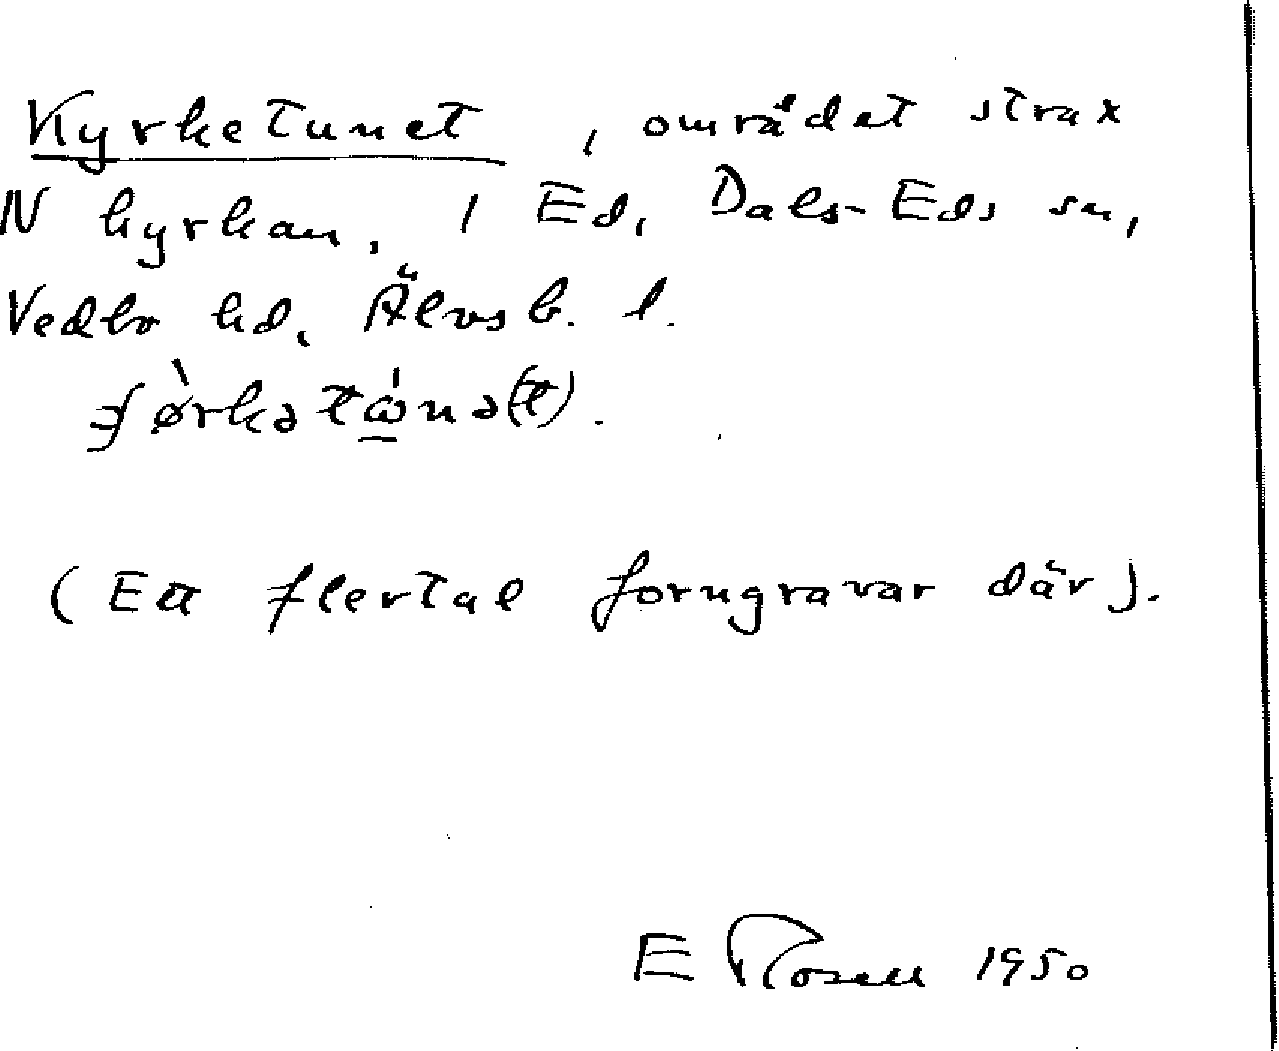 Kyrketunet, området strax
N kyrkan, i Ed, Dals-Eds sn,
Vedbo hd, Älvsb. l.
(Ett flertal forngravar där).
E Rosell 1950